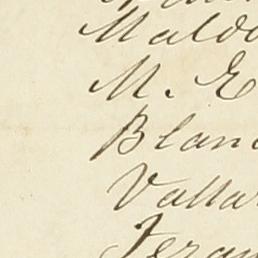 Maldo
M. E
Blan
Valla
Teran